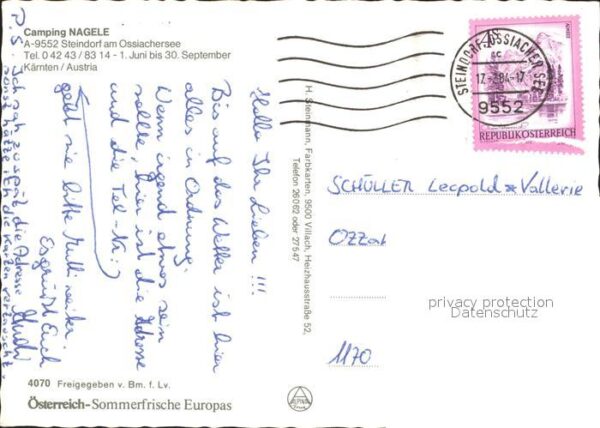 Camping NAGELE
A-9552 Steindorf am Ossiachersee
Tel. 0 42 43 / 83 14 - 1. Juni bis 30. September
Kärnten / Austria
Hallo Ihr Lieben !!!
Bis auf das Wetter ist hier
alles in Ordnung.
Wenn irgend etwas sein
sollte, hier ist die Adresse
und die Tel-Nr.
gebt sie bitte Mutti weiter.
Es grüßt Euch
P.S. Ich sah zu spät die Adresse
sonst hätte ich die Karten vertauscht.
H. Steinmann, Farbkarten, 9500 Villach, Heizhausstraße 52,
Telefon 26062 oder 27547
STEINDORF-OSSIACHER SEE
17.-7.84-17
9552
REPUBLIK ÖSTERREICH
SCHÜLLER Leopold & Vallerie
1170
privacy protection
Datenschutz
4070 Freigegeben v. Bm. f. Lv.
ALPINA
Österreich-Sommerfrische Europas